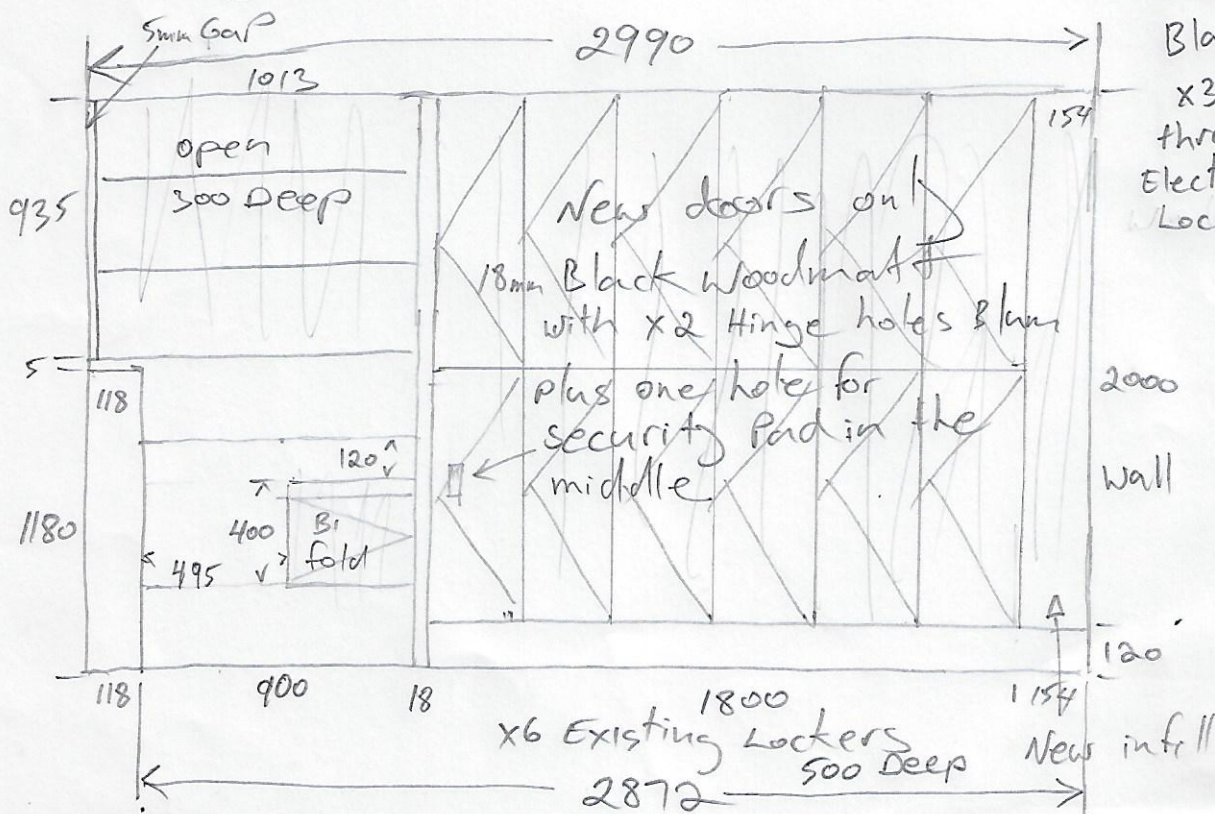 5mm Gap
2990
1013
Bla
x3
thr
Elect
Loc
154
open
300 Deep
935
New doors only
18mm Black Woodmatt
with x2 Hinge holes Blum
plus one hole for
security Pad in the
middle
5
118
2000
Wall
120
400
Bi
fold
495
1180
120
118
900
18
1800
154
x6 Existing Lockers
500 Deep
New infill
2872